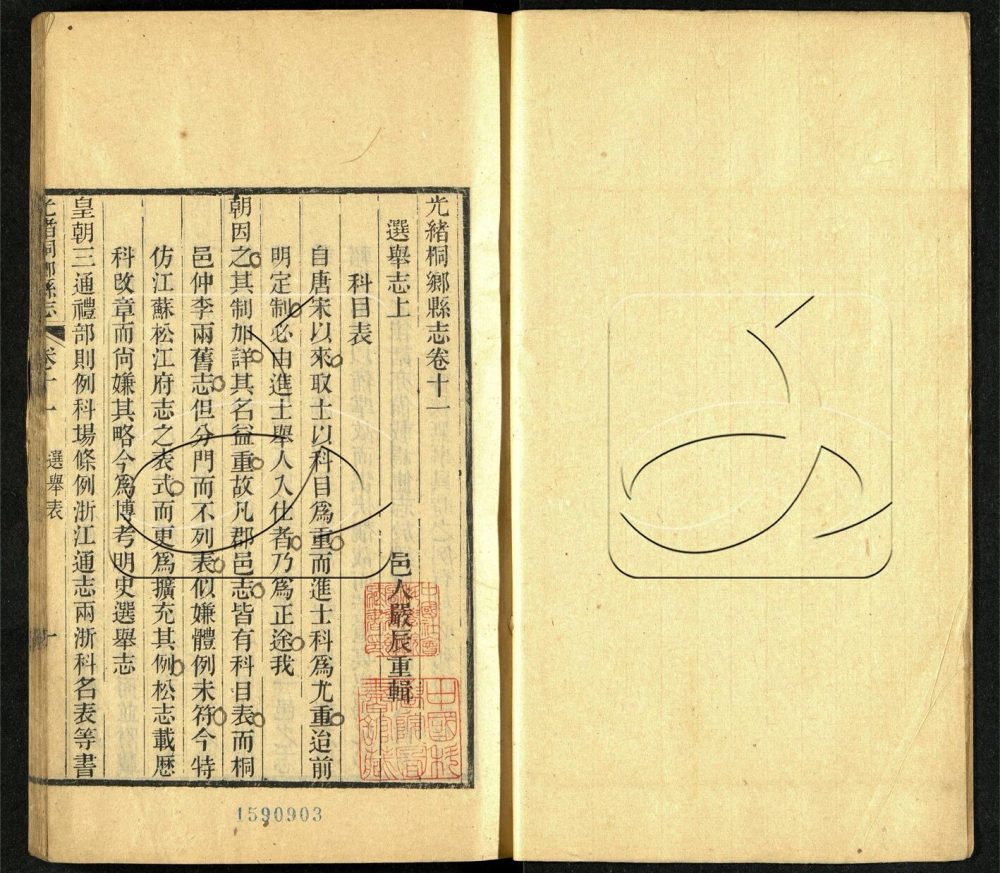 光緒桐鄉縣志卷十一
選舉志上
邑人嚴辰重輯
科目表
自唐宋以來取士以科目爲重而進士科爲尤重迨前
明定制必由進士舉人入仕者乃爲正途我
朝因之其制加詳其名益重故凡郡邑志皆有科目表而桐
邑仲李兩舊志但分門而不列表似嫌體例未符今特
仿江蘇松江府志之表式而更爲擴充其例松志載歷
科改章而尙嫌其略今爲博考明史選舉志
皇朝三通禮部則例科場條例浙江通志兩浙科名表等書
光緒桐鄉縣志
卷十一
選舉表
一
1590903